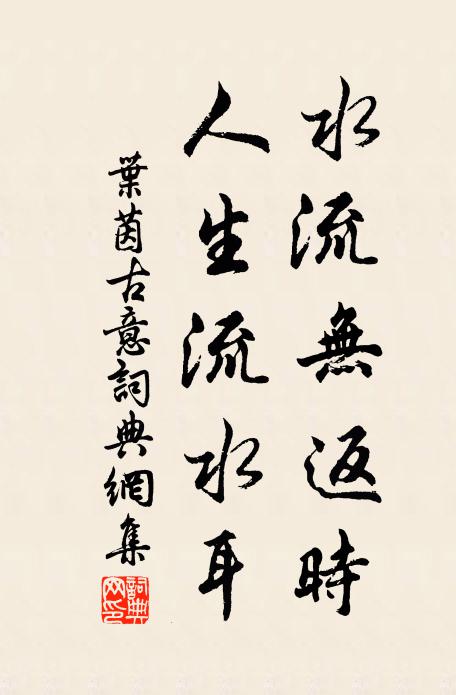 水流無返時
人生流水耳
葉茵古意詞典網集
詞典網印